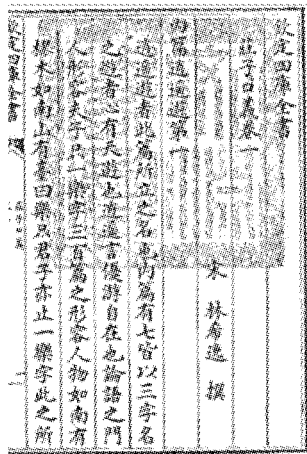 欽定四庫全書
莊子口義卷一
宋 林希逸 撰
內篇逍遙遊第一
逍遙遊者此篇所立之名也內篇有七皆以三字名
之遊者心有天遊也逍遙言優游自在也論語之門
人形容夫子只一樂字三百篇之形容人物如南有
樛木如南山有臺曰樂只君子亦止一樂字此之所
欽定四庫全書
莊子口義
一